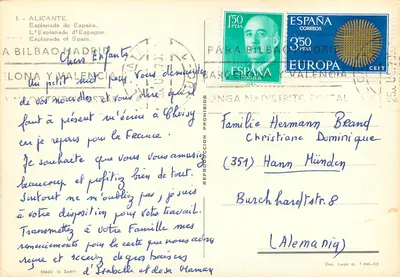 1 - ALICANTE.
Esplanada de España.
L'Esplanade d'Espagne.
Esplanade of Spain.
Chers Enfants
Un petit mot pour vous demander
de vos nouvelles et vous dire qu'il
faut à présent m'écrire à Choisy
car je repars pour la France.
Je souhaite que vous vous amusiez
beaucoup et profitiez bien de tout.
Surtout ne m'oubliez pas, je suis
à votre disposition pour votre travail.
Transmettez à votre Famille mes
remerciements pour la carte que nous avons
reçue et recevez de gros baisers
d'Isabelle et de sa Maman
Made in Spain
REPRODUCCION PROHIBIDA
1,50
PTAS
ESPAÑA
CORREOS
3,50
PTAS
EUROPA
CEIT
PARA BILBAO MADRID
BARCELONA Y VALENCIA
PARA BILBAO MADRID
BARCELONA Y VALENCIA
PONGA Nº DISTRITO POSTAL
Familie Hermann Brand
Christiane Dominique
(351) Hann Münden
Burckhardtstr. 8
(Alemania)